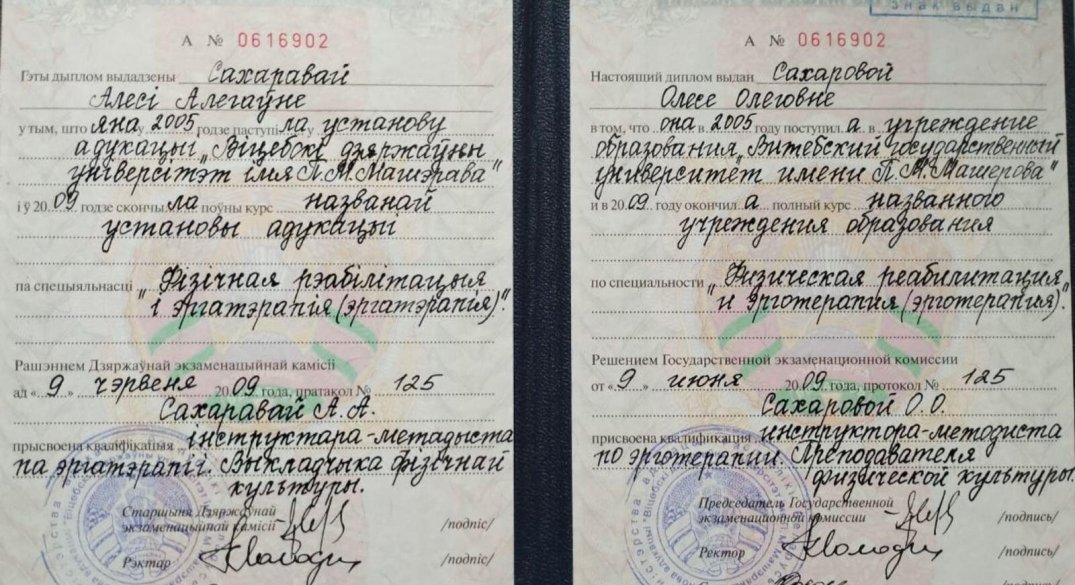 А № 0616902
Гэты дыплом выдадзены Сахаравай
Алесі Алегаўне
у тым, што яна ў 2005 годзе паступіла ў установу
адукацыі „Віцебскі дзяржаўны
ўніверсітэт імя П.М.Машэрава"
і ў 2009 годзе скончыла поўны курс названай
установы адукацыі
па спецыяльнасці „Фізічная рэабілітацыя
і эргатэрапія (эргатэрапія)".
Рашэннем Дзяржаўнай экзаменацыйнай камісіі
ад « 9 » чэрвеня 2009 года, пратакол № 125
Сахаравай А.А.
прысвоена кваліфікацыя інструктара-метадыста
па эргатэрапіі. Выкладчыка фізічнай
культуры.
Старшыня Дзяржаўнай
экзаменацыйнай камісіі /подпіс/
Рэктар /подпіс/
Знак выдан
А № 0616902
Настоящий диплом выдан Сахаровой
Олесе Олеговне
в том, что она в 2005 году поступила в учреждение
образования „Витебский государственный
университет имени П.М.Машерова"
и в 2009 году окончила полный курс названного
учреждения образования
по специальности „Физическая реабилитация
и эрготерапия (эрготерапия)".
Решением Государственной экзаменационной комиссии
от « 9 » июня 2009 года, протокол № 125
Сахаровой О.О.
присвоена квалификация инструктора-методиста
по эрготерапии. Преподавателя
физической культуры.
Председатель Государственной
экзаменационной комиссии /подпись/
Ректор /подпись/